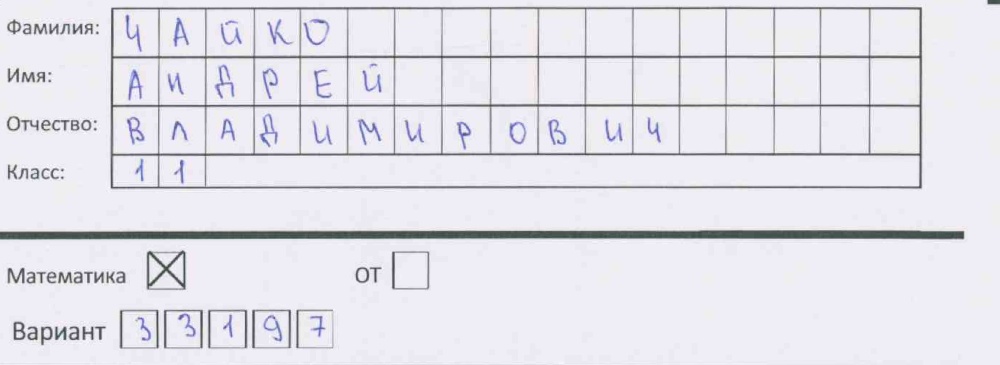 Фамилия: ЧАЙКО
Имя: АНДРЕЙ
Отчество: ВЛАДИМИРОВИЧ
Класс: 11
Математика ☒ ОТ ☐
Вариант 33197